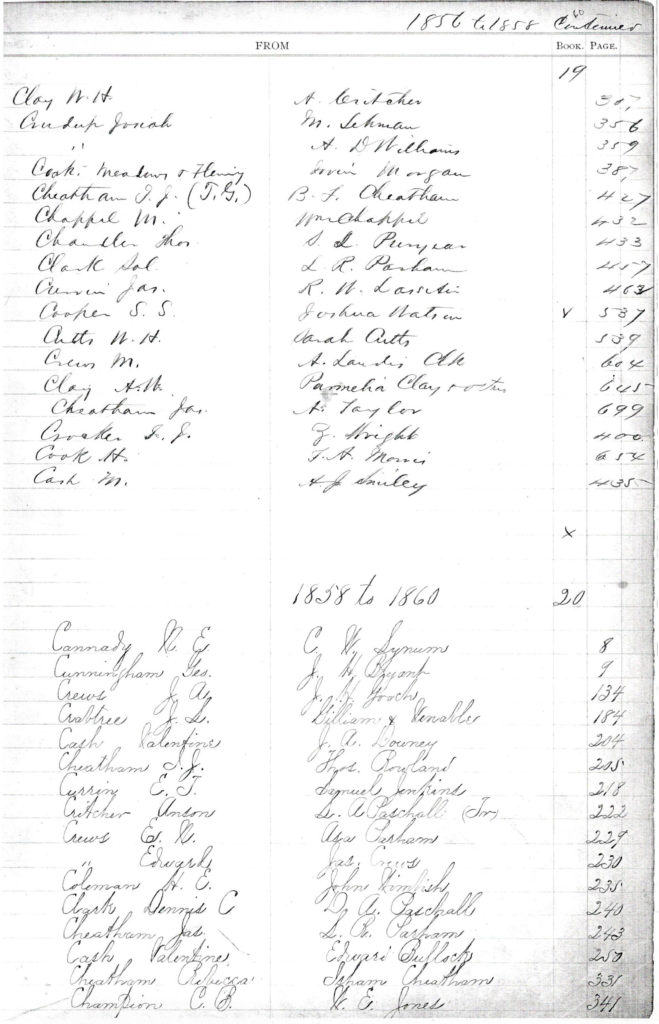 1856 to 1858 Continued
FROM BOOK. PAGE.
19
Clay W. H. A. Critcher 307
Crudup Josiah M. Lehman 356
" A. D Williams 359
Cook, Meadows & Fleming Morgan 387
Cheatham T. J. (T. G.) B. F. Cheatham 427
Chappel M. Wm Chappel 432
Chandler Thos. S. Puryear 433
Clark Sol. L. R. Parham 457
Jas. R. W. Lassiter 463
Cooper S. S. Joshua Watson v 537
Cutts W. H. Sarah Cutts 539
Crews M. A. Landis Clk 604
Clay A. W. Parmelia Clay & others 645
Cheatham Jas. A. Taylor 699
Crocker J. Z. Wright 400
Cook H. T. A. Morris 654
Cash M. A. J. Smiley 435
x
1858 to 1860 20
Cannady N. E C. W. Synum 8
Cunningham Geo. J. H Bryant 9
Crews J. A. J. H Gooch 134
Crabtree J. S. William & Venable 184
Cash Valentine J. A. Downey 204
Cheatham T. J. Thos. Rowland 205
Currin E. T. Samuel Jenkins 218
Critcher Anson L. A Paschall (Tr) 222
Crews E. N. Asa Parham 229
" Edward Jas. Crews 230
Coleman H. E. John Wimbish 235
Clark Dennis C D. A. Paschall 240
Cheatham Jas. L. R. Parham 243
Cash Valentine Edward Bullock 250
Cheatham Rebecca Isham Cheatham 331
Champion C. B. W. E. Jones 341